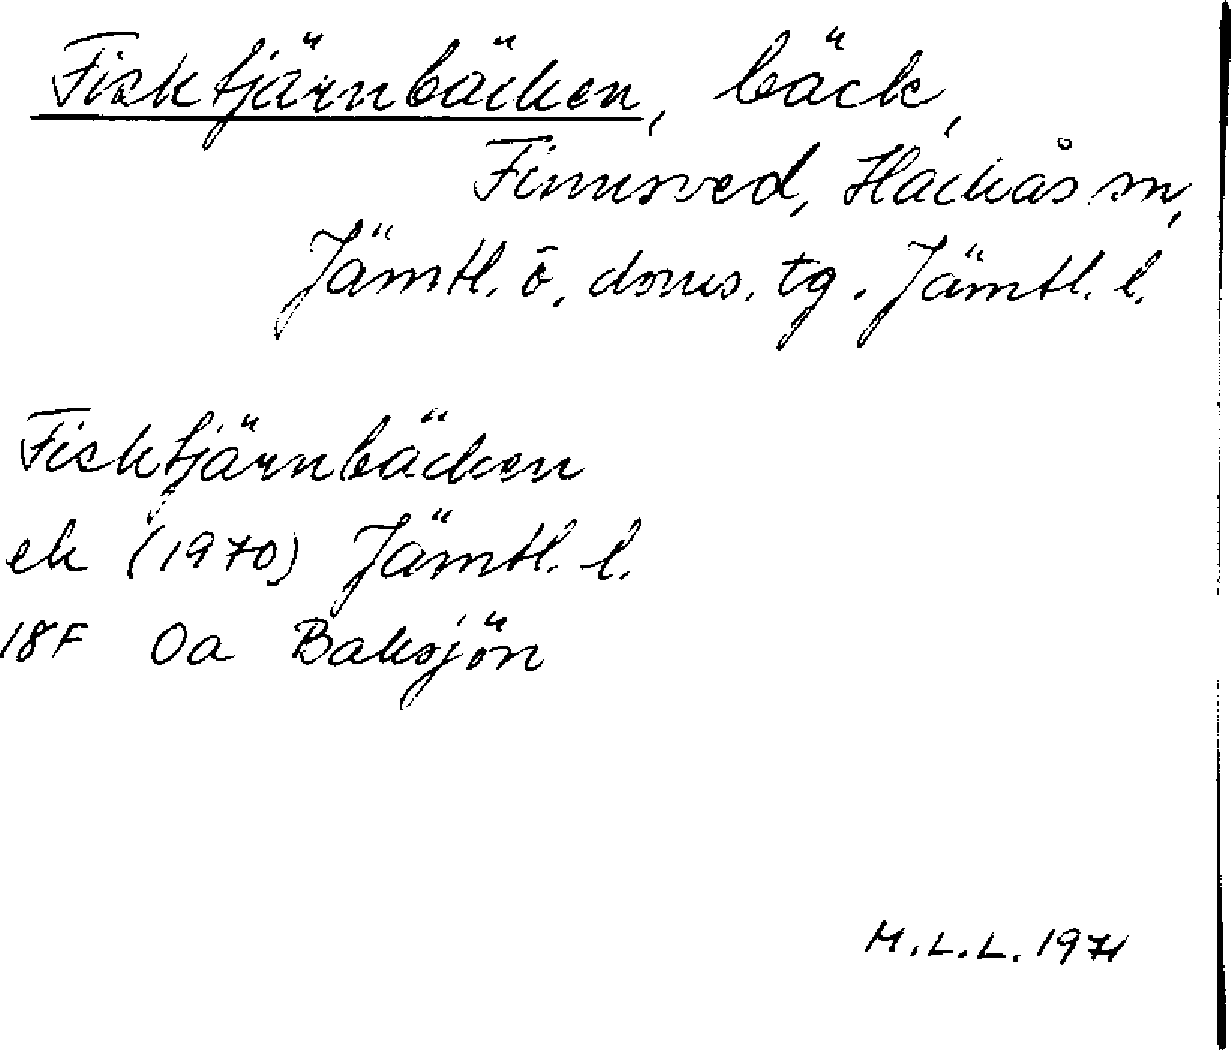 Fisktjärnbäcken, bäck,
Finnsved, Hackås sn,
Jämtl. ö. doms. tg. Jämtl. l.
Fisktjärnbäcken
ek (1970) Jämtl. l.
18F 0a Baksjön
M.L.L. 1971